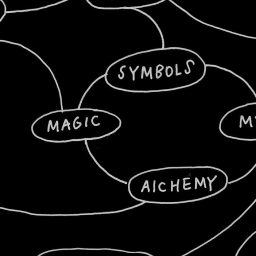 SYMBOLS
MAGIC
M
AlCHEMY